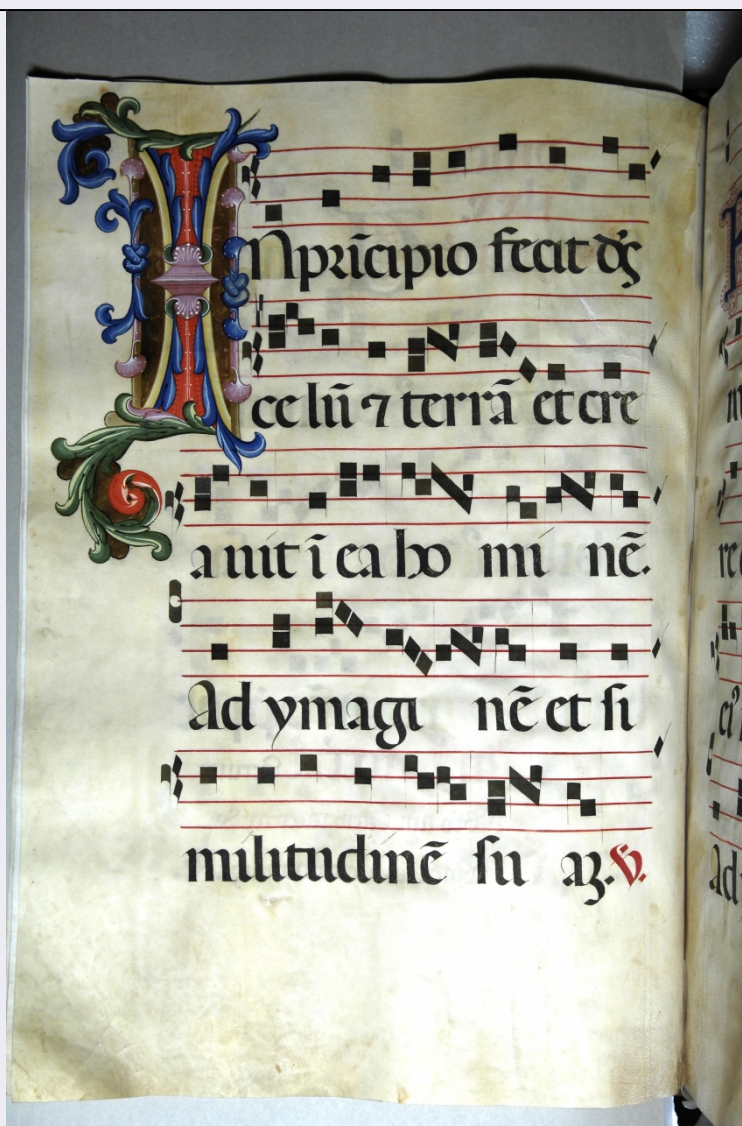 IN pricīpio fecit dꝰs
ce lū ⁊ terrā et cre
a uit ī ea ho mi nē.
Ad ymagi nē et si
militudinē su aʒ. ℣.